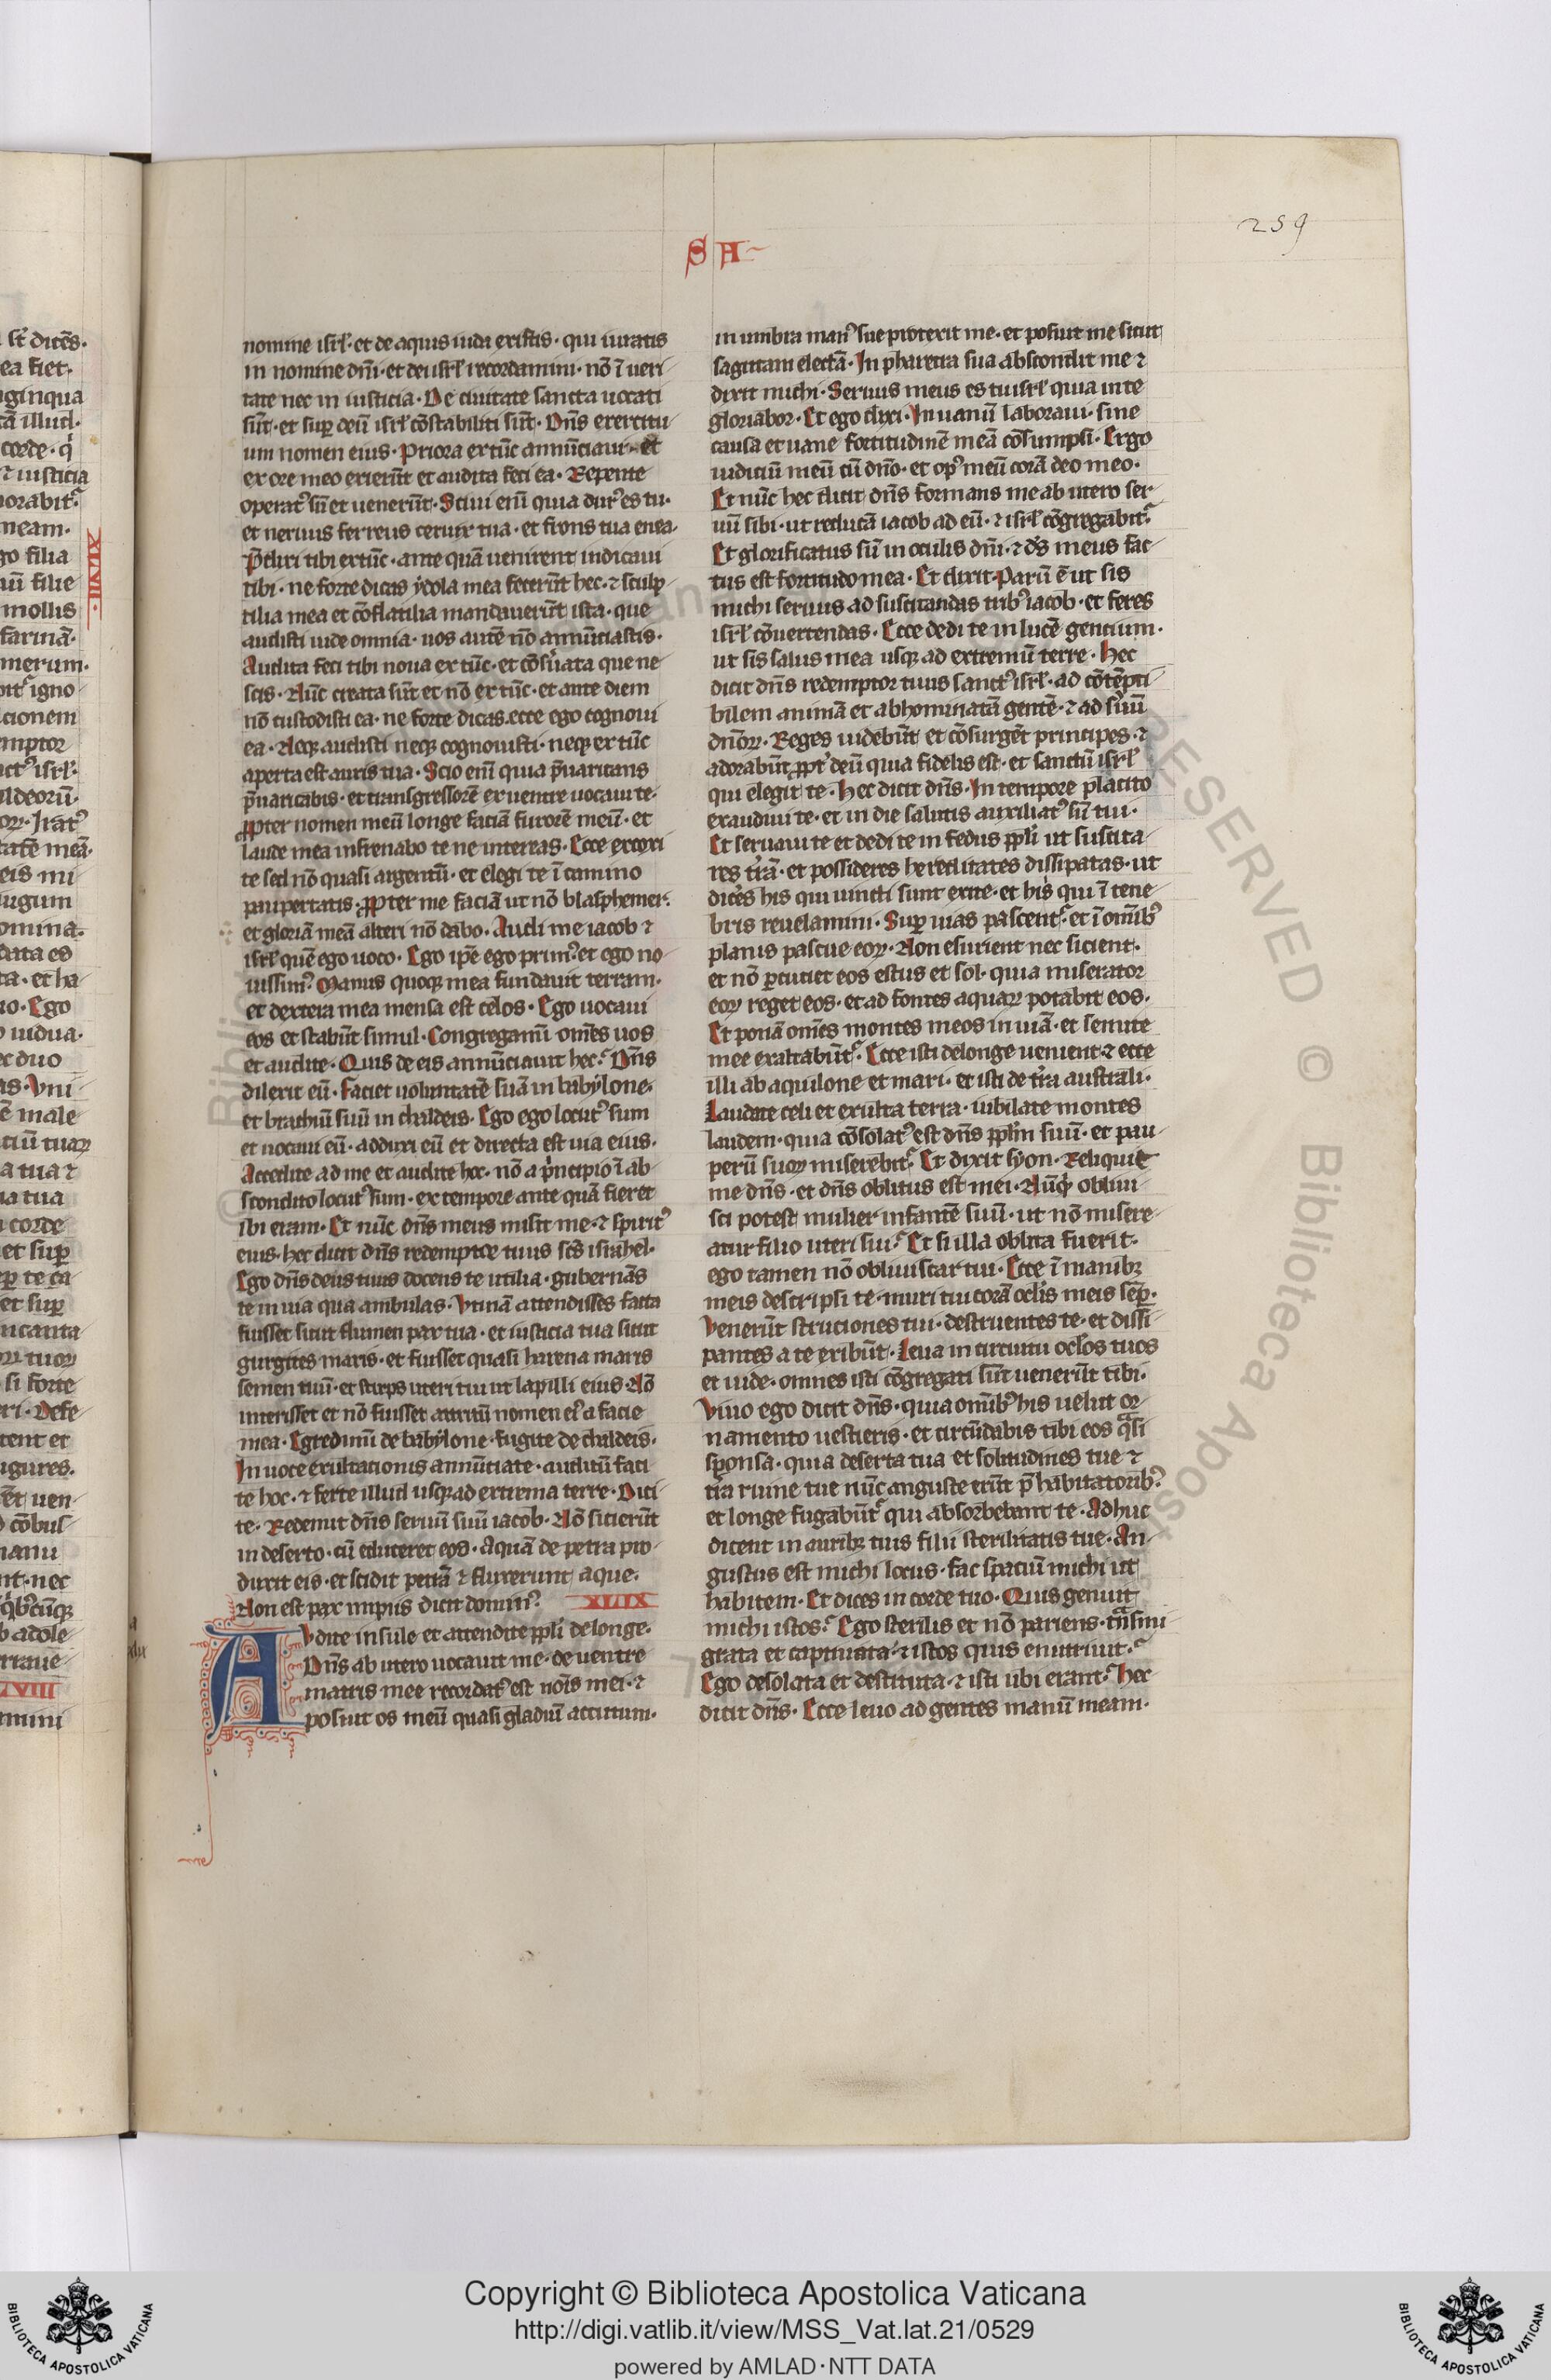 SA
259
nomine isrł · et de aquis iuda existis · qui iuratis
in nomine dñi · et dei isrł recordamini · nō ī ueri
tate nec in iusticia · De ciuitate sancta uocati
sūt · et sup deū isrł cōstabiliti sūt · Dñs exercitu
um nomen eius · Priora ex tūc annūciaui · et
ex ore meo exierūt et audita feci ea · Repente
operatꝰ sū et uenerūt · Sciui enī quia durꝰ es tu ·
et neruus ferreus ceruix tua · et frons tua enea ·
P̄dixi tibi ex tūc · ante quā uenirent indicaui
tibi · ne forte dicas ydola mea fecerūt hec · ⁊ sculp
tilia mea et cōflatilia mandauerūt ista · que
audisti uide omnia · uos autē nō annūciastis ·
Audita feci tibi noua ex tūc · et cōsuata que ne
scis · Nūc creata sūt et nō ex tūc · et ante diem
nō custodisti ea · ne forte dicas ecce ego cognoui
ea · Neqꝫ audisti neqꝫ cognouisti · neqꝫ ex tūc
aperta est auris tua · Scio enī quia p̄uaricans
p̄uaricabis · et transgressorē ex uentre uocaui te ·
Ꝓpter nomen meū longe faciā furorē meū · et
laude mea infrenabo te ne intereas · Ecce excoxi
te sed nō quasi argentū · et elegi te ī camino
paupertatis · Ꝓpter me faciā ut nō blasphemer ·
et gloriā meā alteri nō dabo · Audi me iacob ⁊
isrł quē ego uoco · Ego ip̄e ego primꝰ et ego no
uissimꝰ Manus quoqꝫ mea fundauit terram ·
et dextera mea mensa est celos · Ego uocaui
eos et stabūt simul · Congregamī om̄es uos
et audite · Quis de eis annūciauit hec · Dñs
dilexit eū · Faciet uoluntatē suā in babylone ·
et brachiū suū in chaldeis · Ego ego locutꝰ sum
et uocaui eū · adduxi eū et directa est uia eius ·
Accedite ad me et audite hoc · nō a p̄ncipio ī ab
scondito locutꝰ sum · ex tempore ante quā fieret
ibi eram · Et nūc dñs meus misit me · ⁊ spiritꝰ
eius · hec dicit dñs redemptor tuus scs israhel ·
Ego dñs deus tuus docens te utilia · gubernās
te in uia qua ambulas · Vtinā attendisses · facta
fuisset sicut flumen pax tua · et iusticia tua sicut
gurgites maris · et fuisset quasi harena maris
semen tuū · et stirps uteri tui ut lapilli eius · Nō
interisset et nō fuisset attritū nomen eiꝰ a facie
mea · Egredimī de babylone · fugite de chaldeis ·
In uoce exultacionis annūciate · auditū faci
te hoc · ⁊ ferte illud usqꝫ ad extrema terre · Dici
te · Redemit dñs seruū suū iacob · Nō sicierūt
in deserto · cū educeret eos · Aquā de petra pro
duxit eis · et scidit petrā ⁊ fluxerunt aque ·
Non est pax impiis dicit dominꝰ XLIX
AVdite insule et attendite ppłi de longe ·
Dñs ab utero uocauit me · de uentre
matris mee recordatꝰ est nōis mei · ⁊
posuit os meū quasi gladiū accutum ·
in umbra manꝰ sue protexit me · et posuit me sicut
sagittam electā · In pharetra sua abscondit me ⁊
dixit michi · Seruus meus es tu isrł quia in te
gloriabor · Et ego dixi · In uanū laboraui · sine
causa et uane fortitudinē meā cōsumpsi · Ergo
iudiciū meū cū dño · et opꝰ meū corā deo meo ·
Et nūc hec dicit dñs formans me ab utero ser
uū sibi · ut reducā iacob ad eū · ⁊ isrł cōgregabit᷑
Et glorificatus sū in oculis dñi · ⁊ ds meus fac
tus est fortitudo mea · Et dixit · Parū ē ut sis
michi seruus ad suscitandas tribꝰ iacob · et feces
isrł cōuertendas · Ecce dedi te in lucē gentium ·
ut sis salus mea usqꝫ ad extremū terre · Hec
dicit dñs redemptor tuus sanctꝰ isrł · ad cōtēpti
bilem animā et abhominatā gentē · ⁊ ad suū
dnoꝝ · Reges uidebūt et cōsurgēt principes · ⁊
adorabūt ꝓpt deū quia fidelis est · et sanctū isrł
qui elegit te · Hec dicit dñs · In tempore placito
exaudiui te · et in die salutis auxiliatꝰ sū tui ·
Et seruaui te et dedi te in fedus ppłi ut suscita
res trā · et possideres hereditates dissipatas · ut
dicēs his qui uincti sunt exite · et his qui ī tene
bris reuelamini · Sup uias pascent᷑ · et ī om̄ibꝰ
planis pascue eoꝝ · Non esurient nec sicient ·
et nō ꝑcutiet eos estus et sol · quia miserator
eoꝝ reget eos · et ad fontes aquaꝝ potabit eos ·
Et ponā om̄es montes meos in uiā · et semite
mee exaltabūt᷑ · Ecce isti de longe uenient ⁊ ecce
illi ab aquilone et mari · et isti de tra australi ·
Laudate celi et exulta terra · iubilate montes
laudem · quia cōsolatꝰ est dñs ppłm suū · et pau
perū suoꝝ miserebit᷑ · Et dixit syon · Reliquit
me dñs · et dñs oblitus est mei · Nūqd obliui
sci potest mulier infantē suū · ut nō misere
atur filio uteri sui · Et si illa oblita fuerit ·
ego tamen nō obliuiscar tui · Ecce ī manibꝫ
meis descripsi te · muri tui corā oclis meis semꝑ ·
Venerūt structiones tui · destruentes te · et dissi
pantes a te exibūt · Leua in circuitu oclos tuos
et uide · omnes isti cōgregati sūt uenerūt tibi ·
Viuo ego dicit dñs · quia omībꝰ his uelut or
namento uestieris · et circūdabis tibi eos qsi
sponsa · quia deserta tua et solitudines tue ⁊
tra ruine tue nūc anguste erūt p̄ habitatoribꝰ
et longe fugabūt᷑ qui absorbebant te · Adhuc
dicent in auribꝫ tuis filii sterilitatis tue · An
gustus est michi locus · fac spaciū michi ut
habitem · Et dices in corde tuo · Quis genuit
michi istos · Ego sterilis et nō pariens · tnsmi
grata et captiuata · ⁊ istos quis enutriuit ·
Ego desolata et destituta · ⁊ isti ubi erant · Hec
dicit dñs · Ecce leuo ad gentes manū meam ·
Copyright © Biblioteca Apostolica Vaticana
http://digi.vatlib.it/view/MSS_Vat.lat.21/0529
powered by AMLAD·NTT DATA
BIBLIOTECA APOSTOLICA VATICANA
BIBLIOTECA APOSTOLICA VATICANA